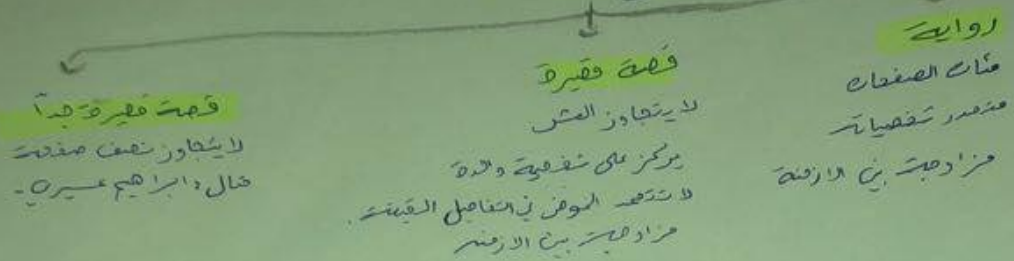 رواية
مئات الصفحات
متعدد شخصيات
مزاوجة بين الازمنة
قصة قصيرة
لا يتجاوز العشر
يركز على شخصية واحدة
الخوض في التفاصيل
مزاوجة بين الازمنه
قصة قصيرة جداً
لا يتجاوز نصف صفحة
ابراهيم